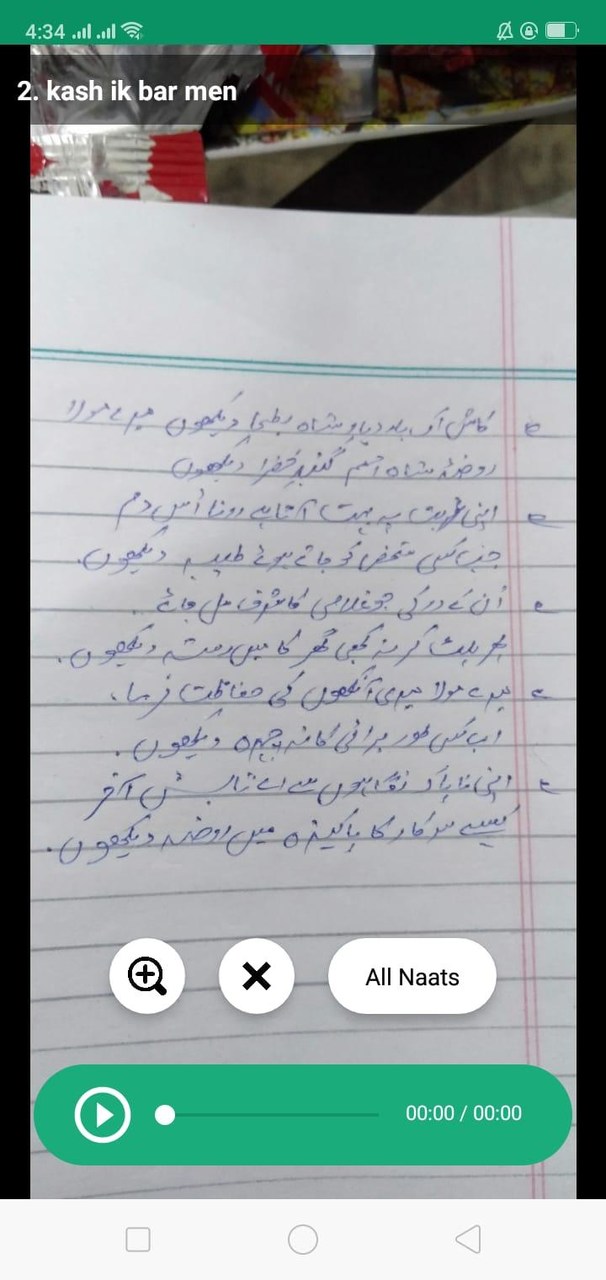 4:34
2. kash ik bar men
کاش اک بار دیار شاہ بطحا دیکھوں میرے مولا
روضۂ شاہ امم گنبد خضرا دیکھوں
اپنی غربت پہ بہت آتا ہے رونا اُس دم
جب کسی شخص کو جاتے ہوئے طیبہ دیکھوں
اُن کے در کی جو غلامی کا شرف مل جائے
پھر پلٹ کر نہ کبھی گھر کا میں رستہ دیکھوں
میرے مولا میری آنکھوں کی حفاظت فرما
اب کسی طور برائی کا نہ چہرہ دیکھوں
اپنی ناپاک نگاہوں سے اے تابش آخر
کیسے سرکار کا پاکیزہ میں روضہ دیکھوں
All Naats
00:00 / 00:00